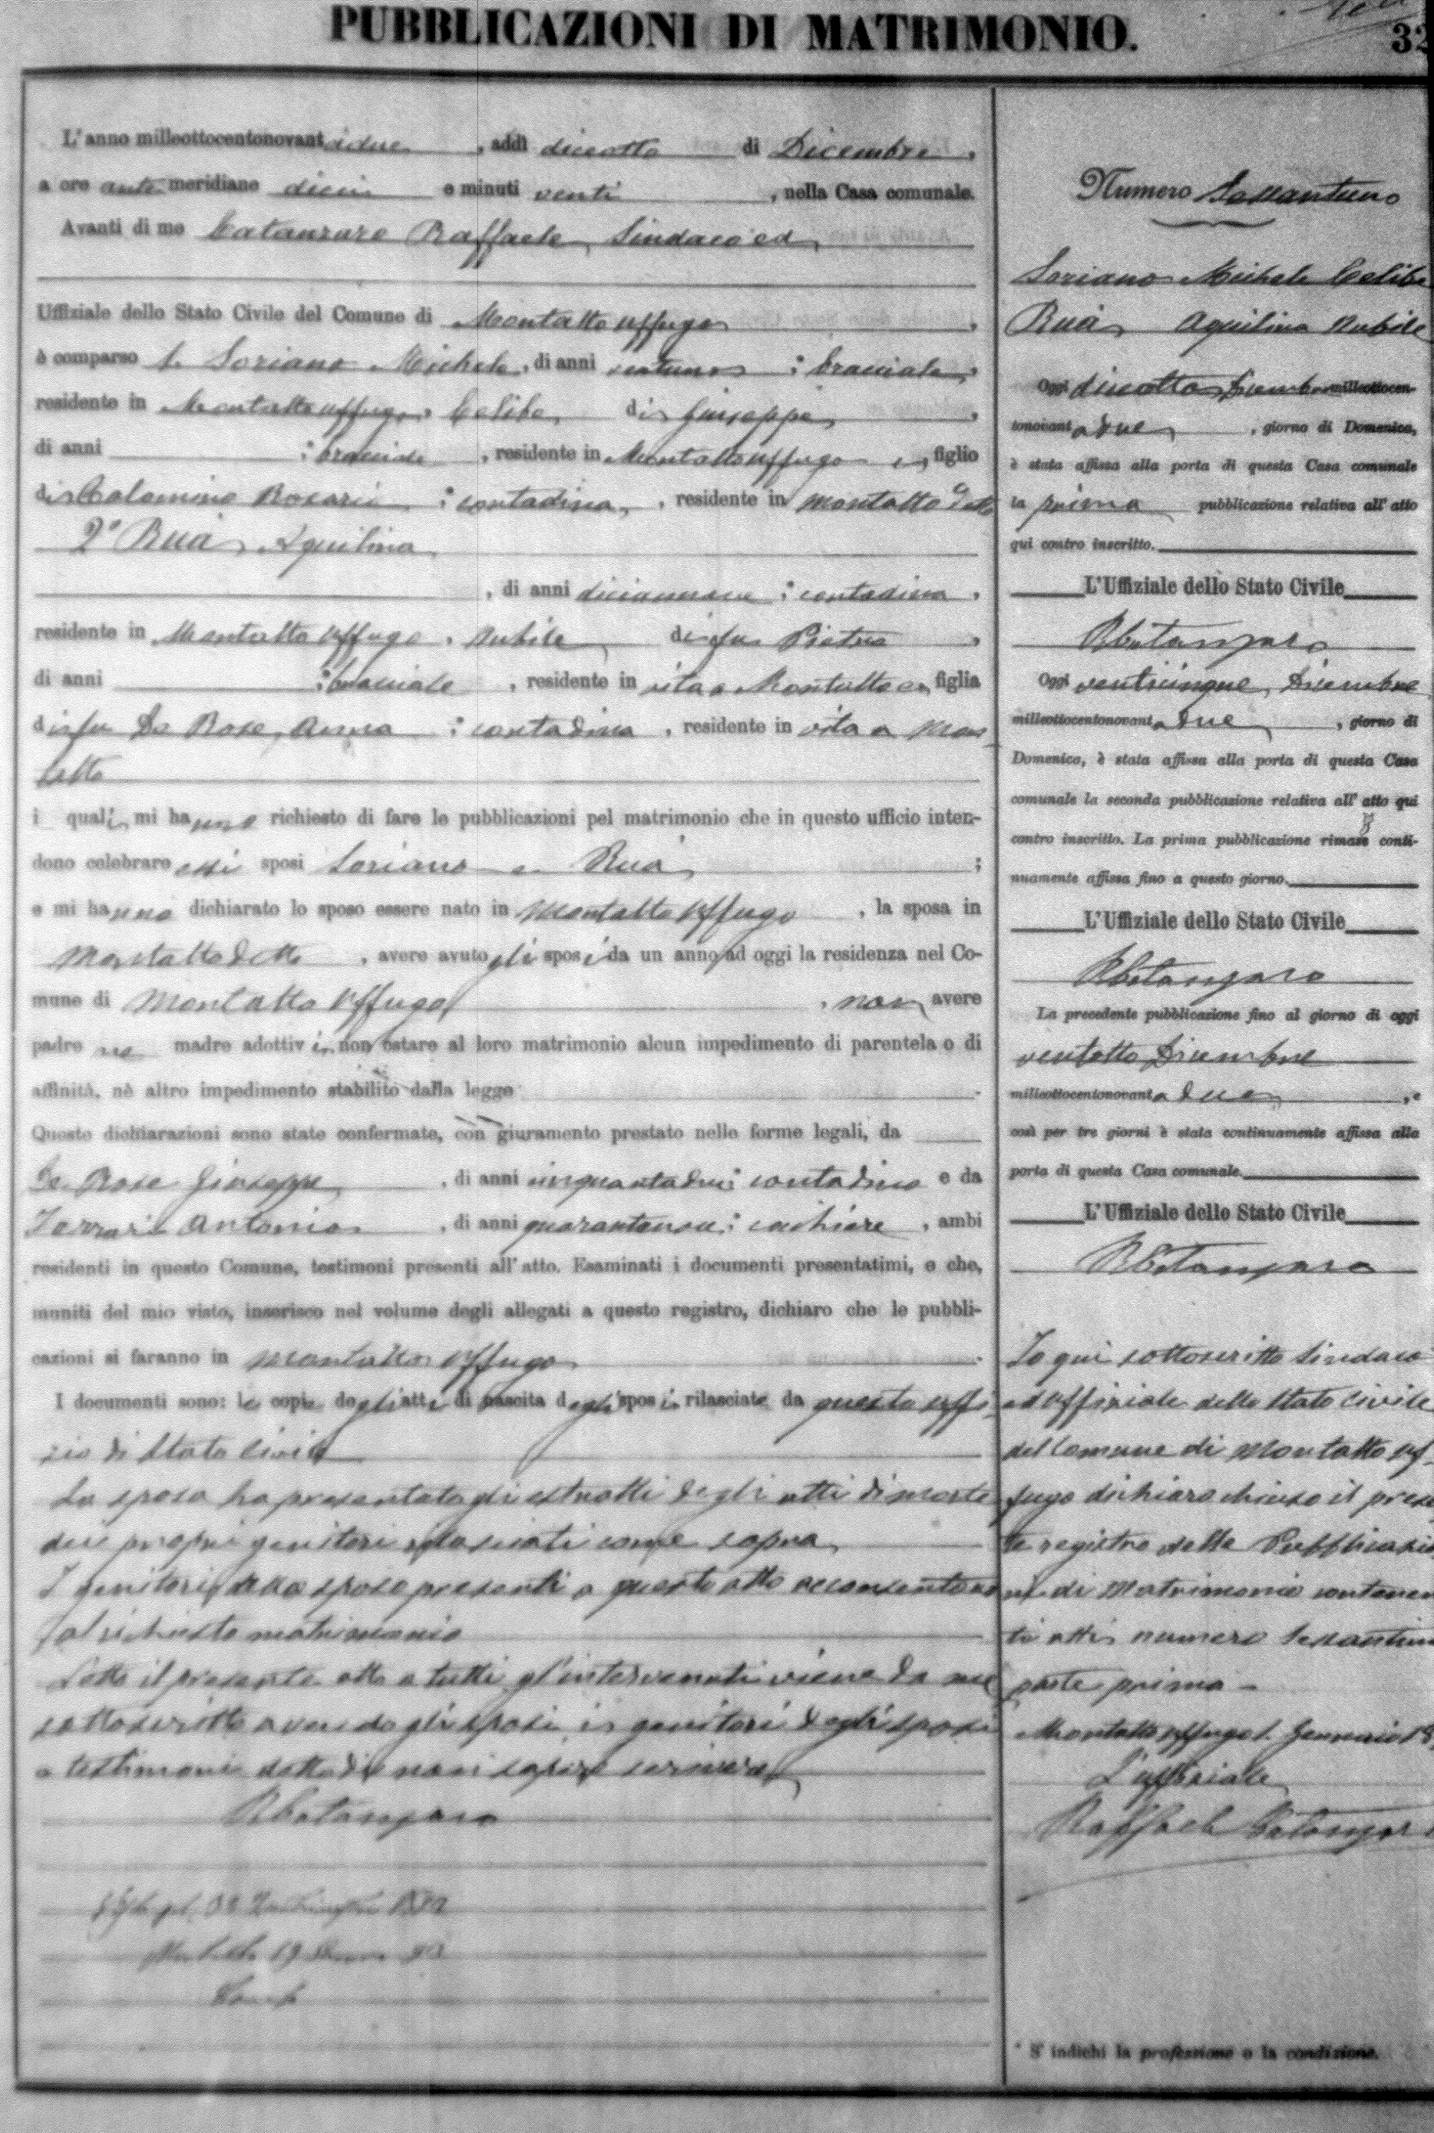 PUBBLICAZIONI DI MATRIMONIO.
32
L'anno milleottocentonovantadue, addì diciotto di Dicembre,
a ore antemeridiane dieci e minuti venti, nella Casa comunale.
Avanti di me Catanzaro Raffaele, Sindaco ed
Uffiziale dello Stato Civile del Comune di Montalto Uffugo,
è comparso 1. Soriano Michele, di anni ventuno; bracciale,
residente in Montalto Uffugo, Celibe, di Giuseppe,
di anni : bracciale, residente in Montalto Uffugo e figlio
di Calomino Rosaria : contadina, residente in Montalto detto
2° Ruà Aquilina
, di anni diciannove : contadina,
residente in Montalto Uffugo, Nubile di fu Pietro,
di anni : bracciale, residente in vita a Montalto e figlia
di fu De Rose Anna : contadina, residente in vita a Mon-
talto
i quali mi hanno richiesto di fare le pubblicazioni pel matrimonio che in questo ufficio inten-
dono celebrare essi sposi Soriano e Ruà ;
e mi hanno dichiarato lo sposo essere nato in Montalto Uffugo, la sposa in
Montalto detto, avere avuto gli sposi da un anno ad oggi la residenza nel Co-
mune di Montalto Uffugo, non avere
padre ne madre adottivi, non ostare al loro matrimonio alcun impedimento di parentela o di
affinità, nè altro impedimento stabilito dalla legge
Queste dichiarazioni sono state confermate, con giuramento prestato nelle forme legali, da
De Rose Giuseppe, di anni cinquantadue : contadino e da
Ferrari Antonio, di anni quarantanove : , ambi
residenti in questo Comune, testimoni presenti all'atto. Esaminati i documenti presentatimi, e che,
muniti del mio visto, inserisco nel volume degli allegati a questo registro, dichiaro che le pubbli-
cazioni si faranno in Montalto Uffugo.
I documenti sono: le copie degli atti di nascita degli sposi rilasciate da questo uffi-
zio di Stato Civile
La sposa ha presentato gli estratti degli atti di morte
dei propri genitori rilasciati come sopra
I genitori dello sposo presenti a questo atto acconsentono
al richiesto matrimonio
Letto il presente atto a tutti gl'intervenuti viene da me
sottoscritto avendo gli sposi, i genitori degli sposi
e testimoni detto di non sapere scrivere
RCatanzaro
Numero Sessantuno
Soriano Michele Celibe
Ruà Aquilina Nubile
Oggi diciotto Dicembre milleottocen-
tonovantadue, giorno di Domenica,
è stata affissa alla porta di questa Casa comunale
la prima pubblicazione relativa all'atto
qui contro inscritto.
L'Uffiziale dello Stato Civile
RCatanzaro
Oggi venticinque Dicembre
milleottocentonovantadue, giorno di
Domenica, è stata affissa alla porta di questa Casa
comunale la seconda pubblicazione relativa all'atto qui
contro inscritto. La prima pubblicazione rimase conti-
nuamente affissa fino a questo giorno.
L'Uffiziale dello Stato Civile
RCatanzaro
La precedente pubblicazione fino al giorno di oggi
ventotto Dicembre
milleottocentonovantadue, e
così per tre giorni è stata continuamente affissa alla
porta di questa Casa comunale.
L'Uffiziale dello Stato Civile
RCatanzaro
Io qui sottoscritto Sindaco
ed uffiziale dello Stato Civile
del Comune di Montalto Uf-
fugo dichiaro chiuso il presen
te registro delle Pubblicazio
ni di Matrimonio contenen
ti atti numero Sessantuno
parte prima -
Montalto Uffugo 1. Gennaio 18
L'uffiziale
Raffaele Catanzaro
* S'indichi la professione o la condizione.